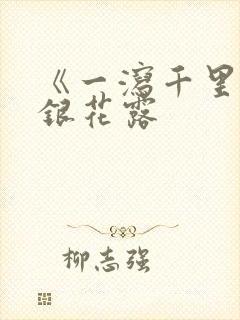 《一泻千里
银花露
柳志强